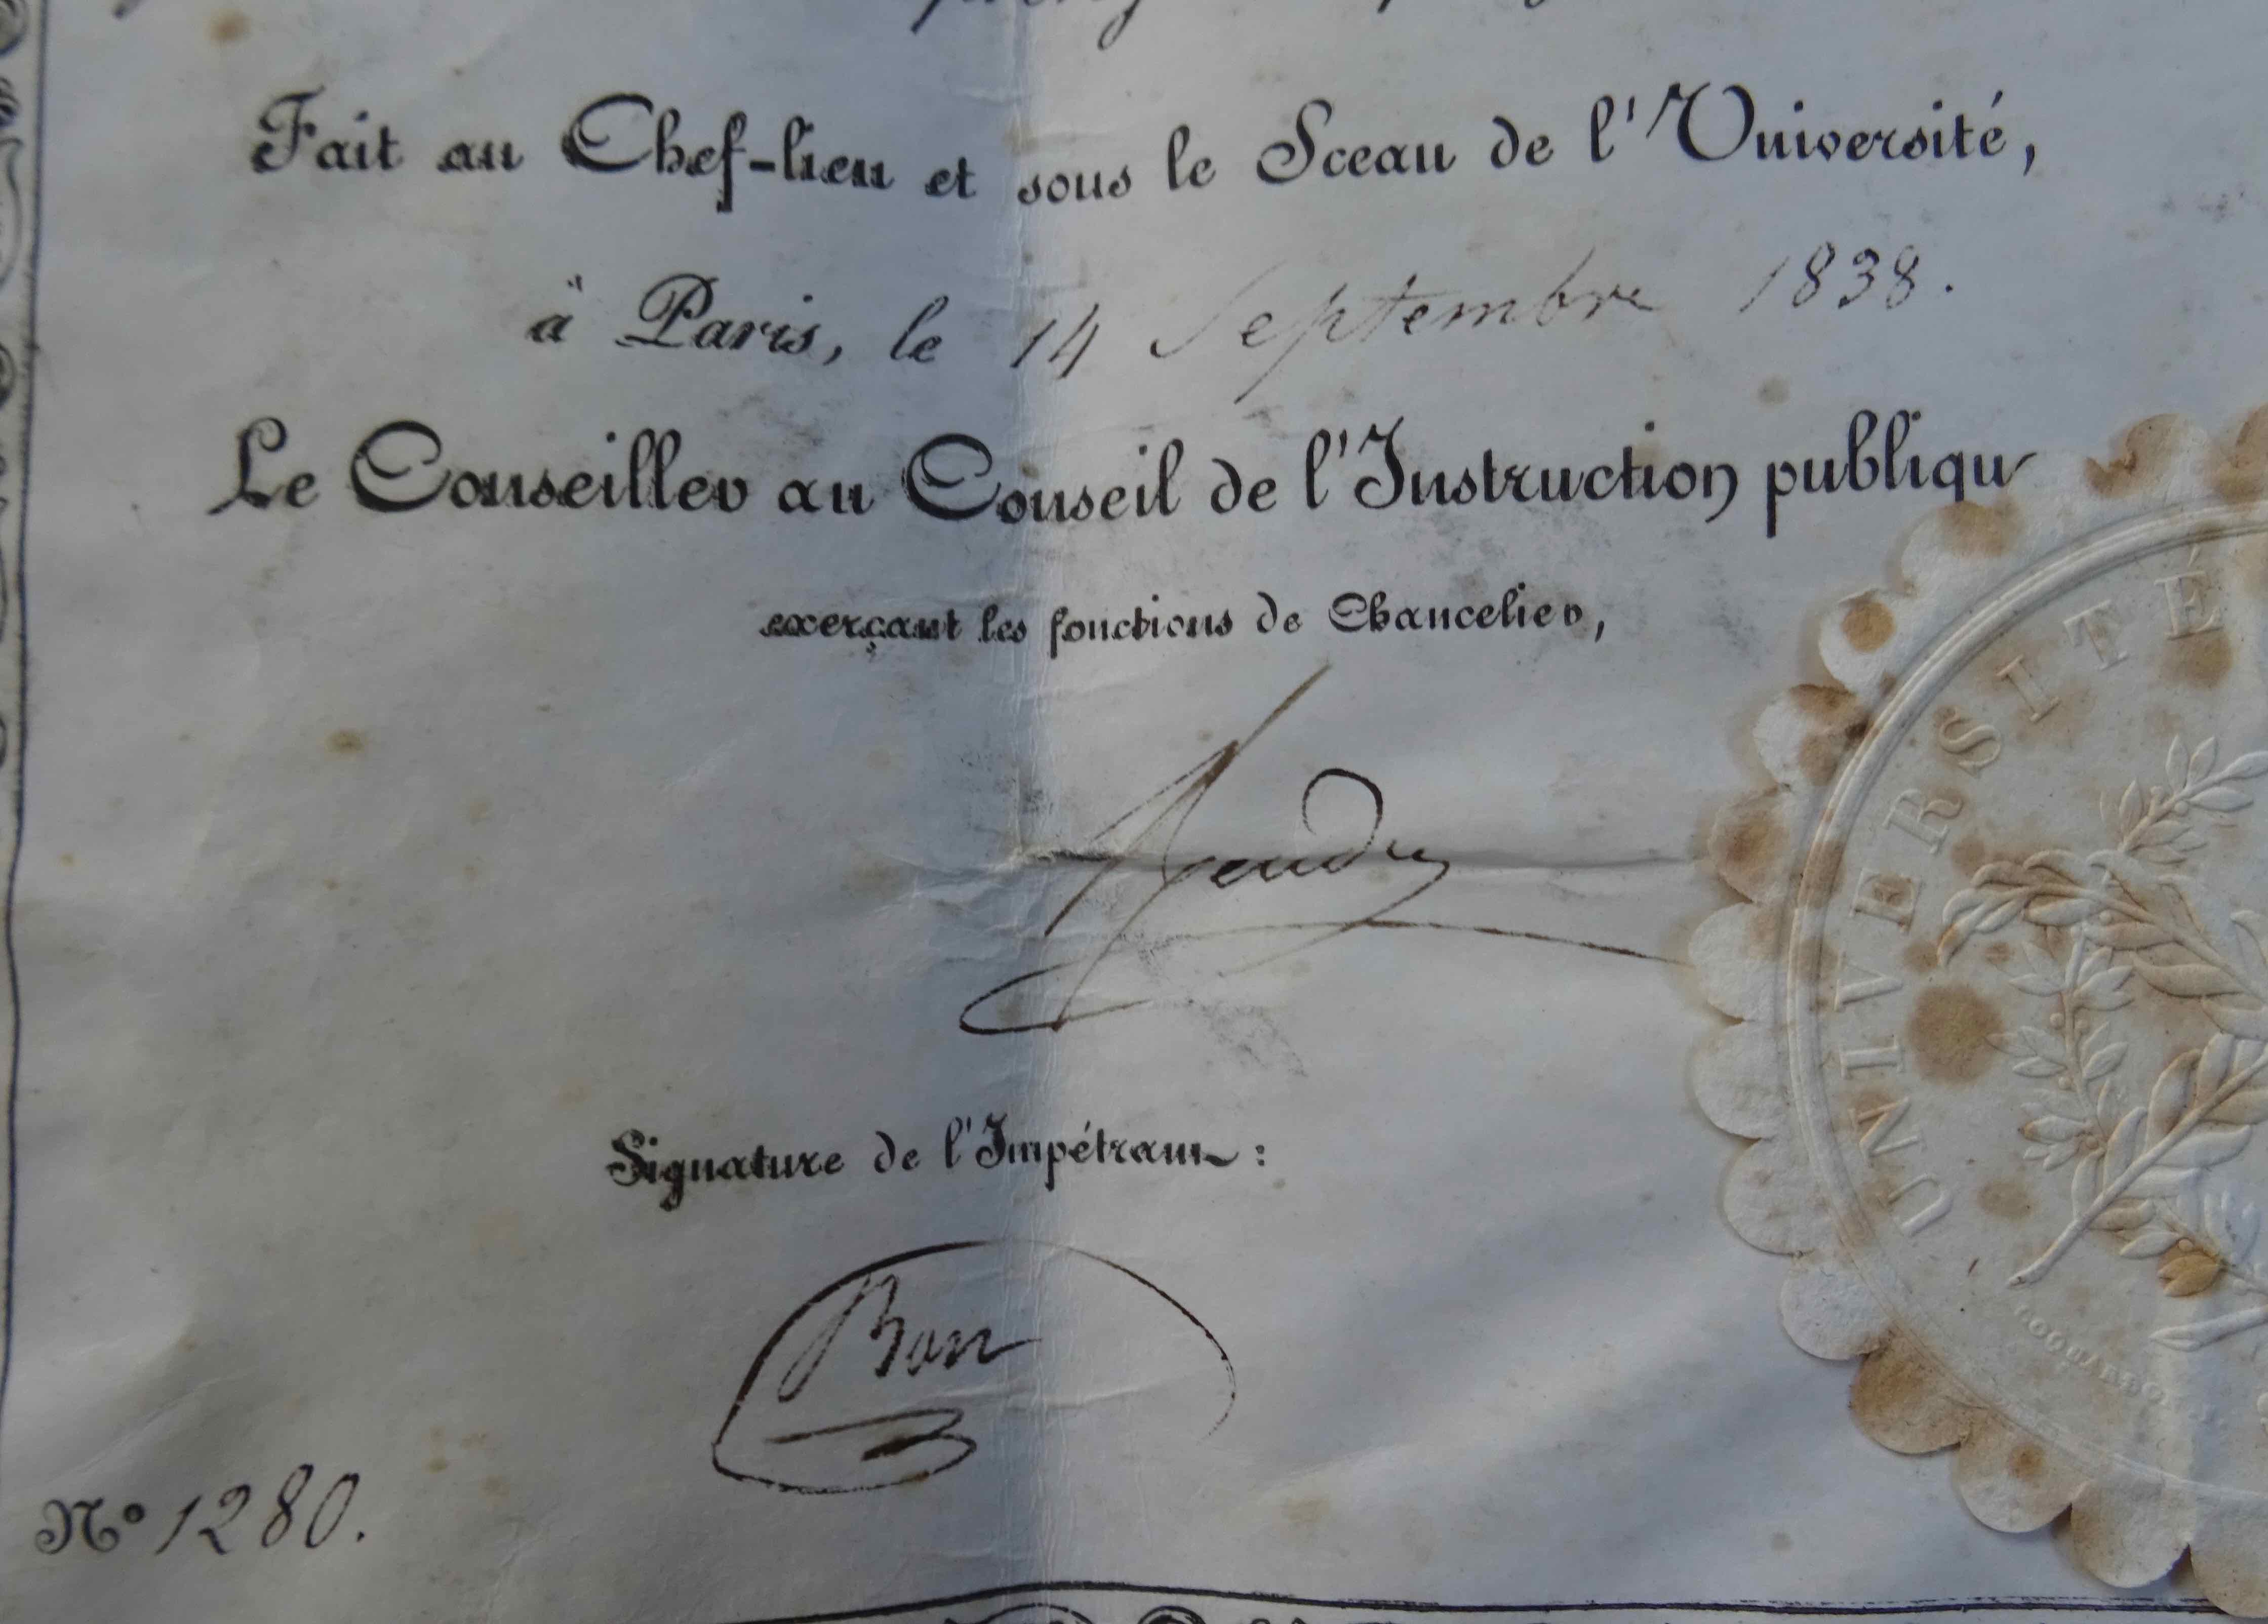 Fait au Chef-lieu et sous le Sceau de l'Université,
à Paris, le 14 Septembre 1838.
Le Conseiller au Conseil de l'Instruction publique
exerçant les fonctions de Chancelier,
UNIVERSITÉ
Signature de l'Impétrant :
N° 1280.